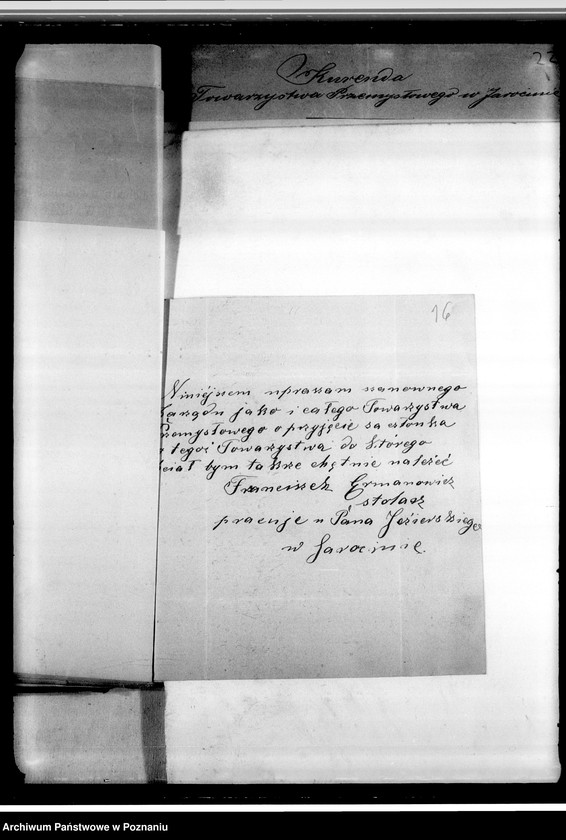 22
Kurenda
Towarzystwa Przemysłowego w Jarocinie
16
Niniéjszem upraszam szanownego
Zarządu jako i całego Towarzystwa
Przemysłowego o przyjęcié sa członka
tegoż Towarzystwa do którego
ciał bym także chętnie należéć
Franciszek Ermanowicz
stolasz
pracuje u Pana Jezierskiego
w Jarocinie.
Archiwum Państwowe w Poznaniu